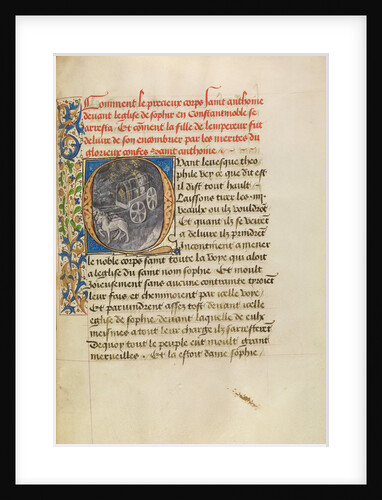 Comment le precieux corps saint anthoine
devant leglise de sophie en Constantinoble se
arresta Et coment la fille de lempereur fut
delivre de son encombrier par les merites du
glorieux confes saint anthoine
Quant levesque theo
phile vey ce que dit est
il dist tout hault
Laissons tirer les
beaulx ou ilz vouldront
Et quant ilz se virent
a delivre ilz prindrent
Incontinent a mener
le noble corps saint toute la voye qui aloit
a leglise du saint nom sophie Et moult
Joieusement sans aucune contrainte tyroient
leur fais et cheminoient par celle voye
Et parvindrent assez tost devant celle
eglise de sophie devant laquelle de eulx
meismes a tout leur charge ilz sarresterent
De quoy tout le peuple eut moult grant
merveilles Et la estoit dame sophie